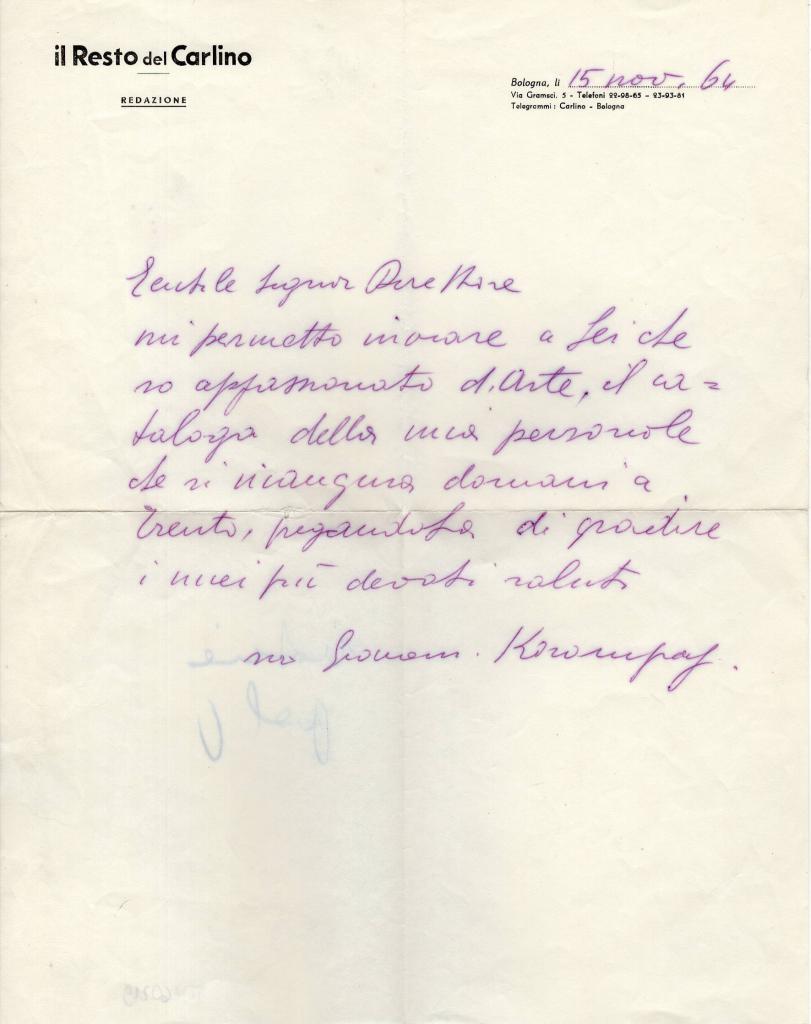 il Resto del Carlino
REDAZIONE
Bologna, li 15 nov. 64
Via Gramsci, 5 - Telefoni 22-98-65 - 23-93-81
Telegrammi: Carlino - Bologna
Gentile Signor Direttore
mi permetto inviare a Lei che
so appassionato d'Arte, il ca=
talogo della mia personale
che si inaugura domani a
Trento, pregandola di gradire
i miei più devoti saluti
suo Giovanni Korompay.